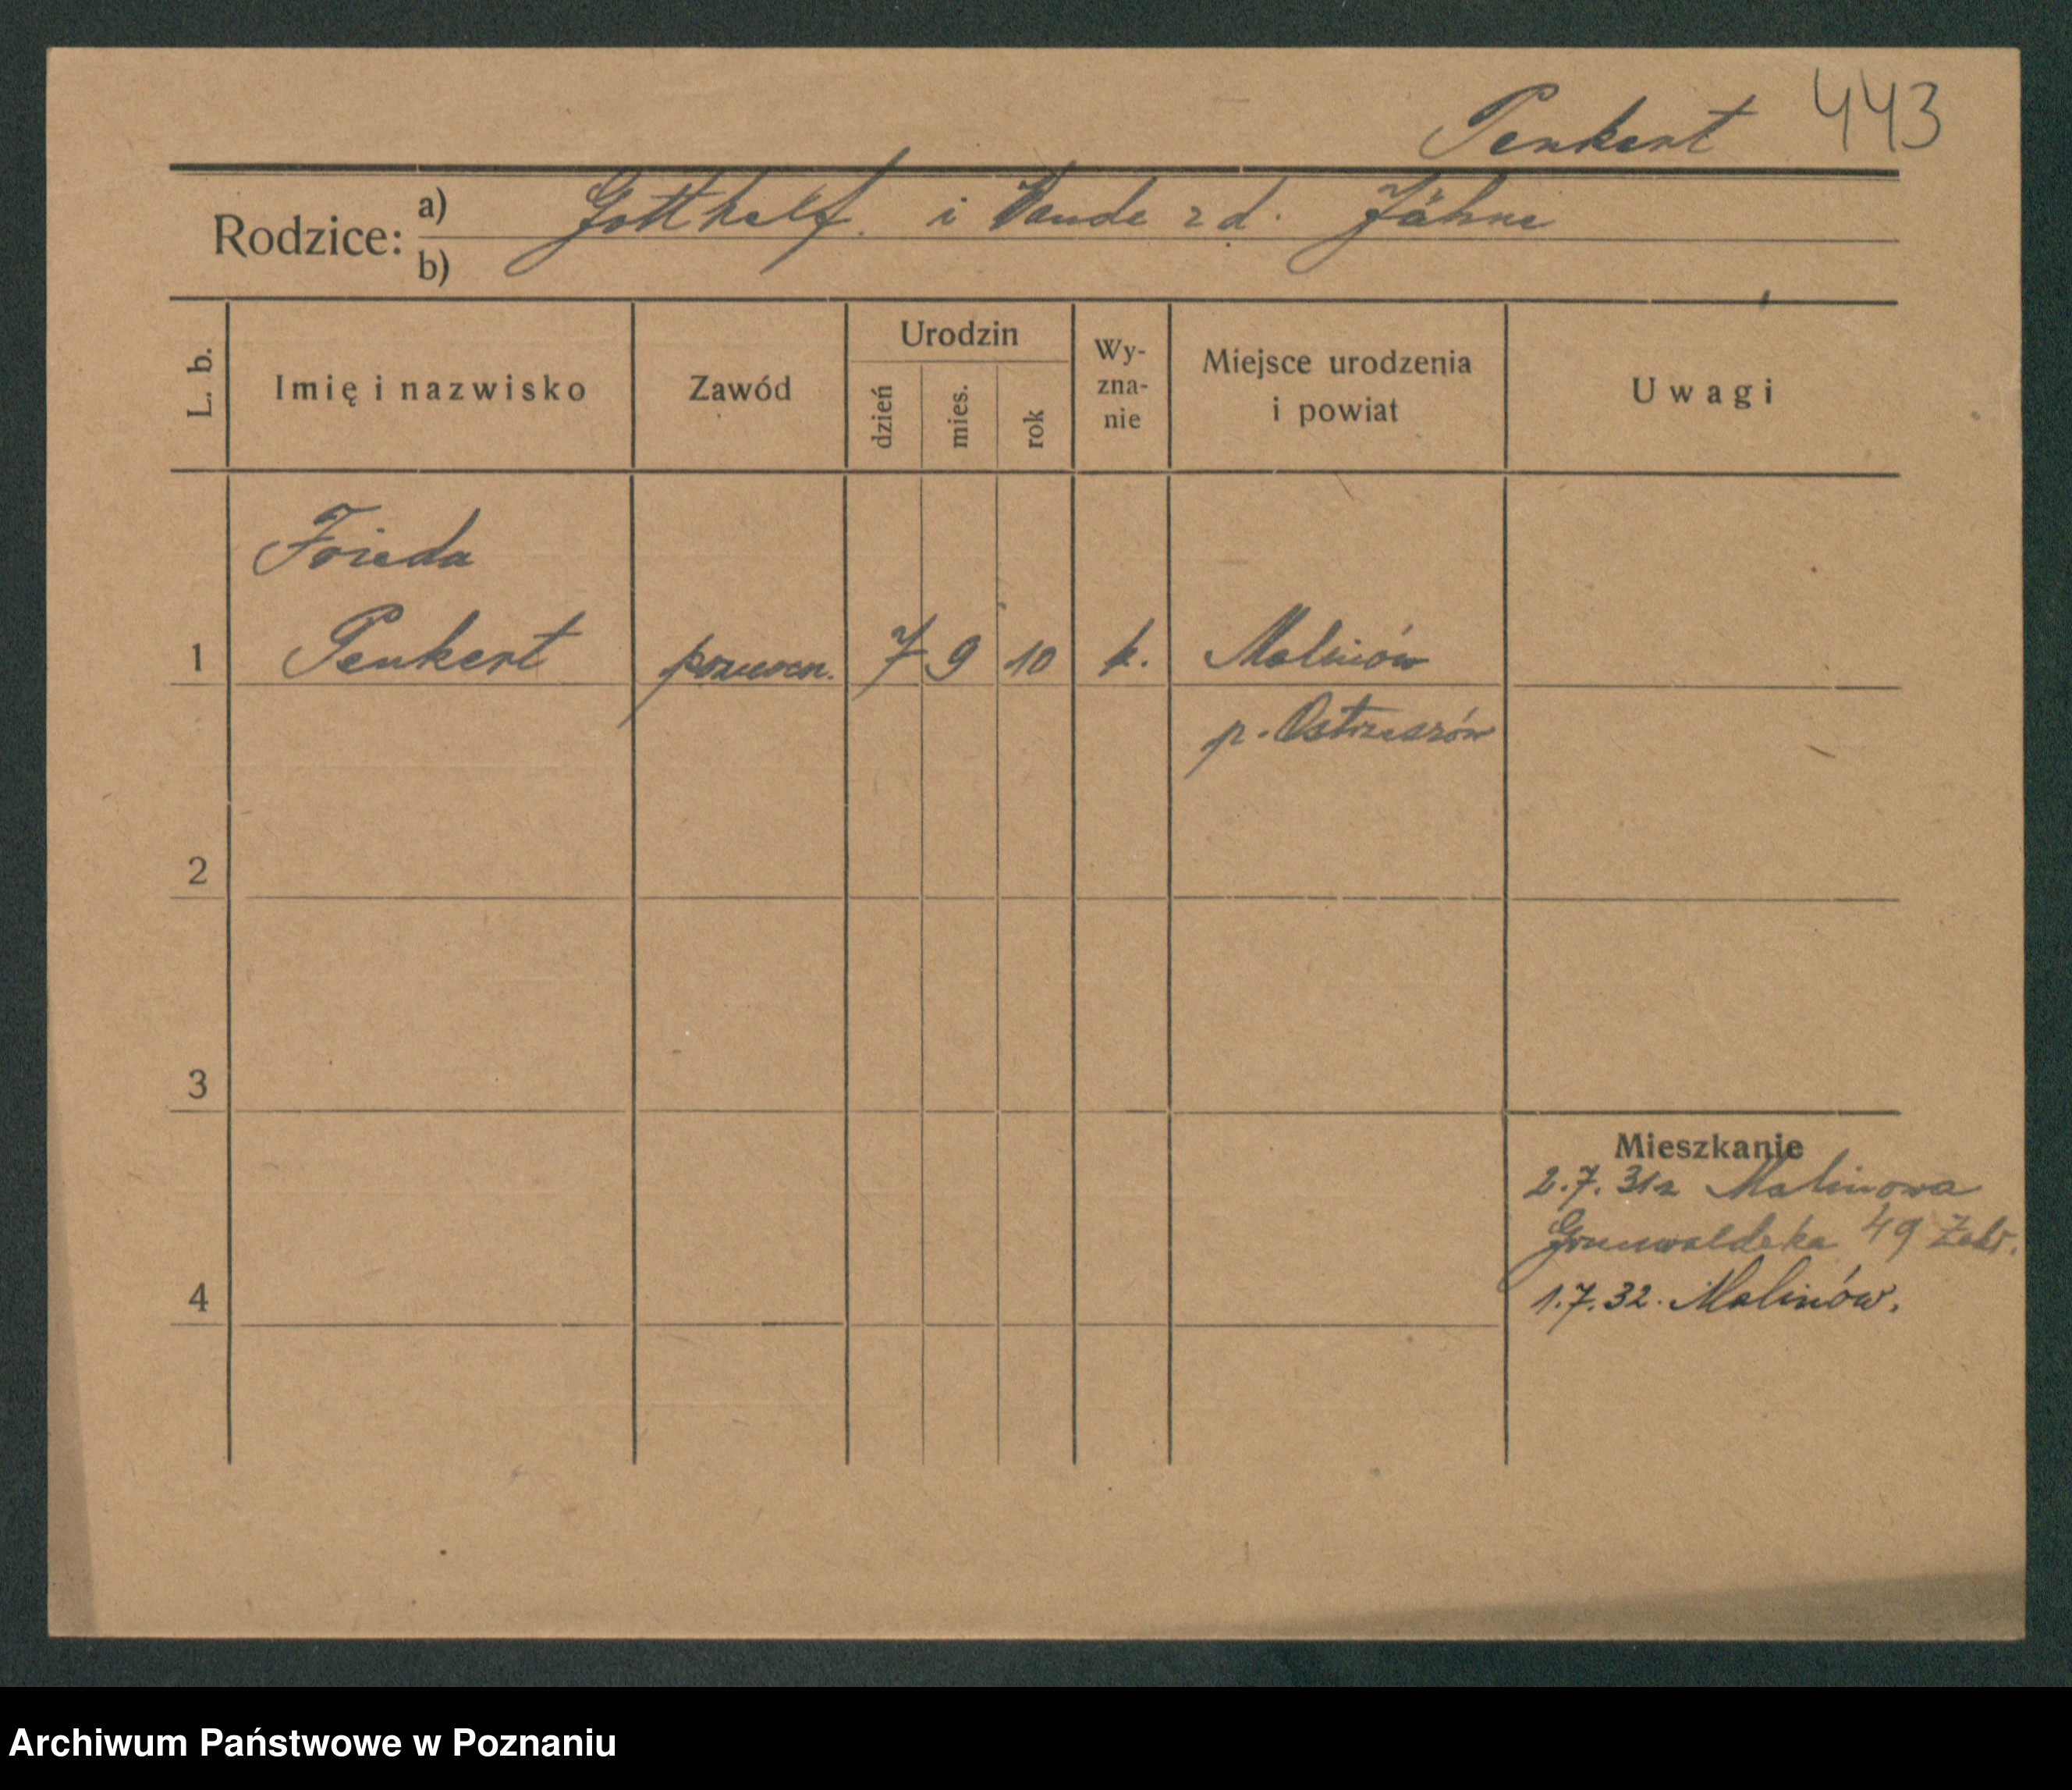 Penkert 443
Rodzice: a) Gotthelf i Wanda z d. Jähne
b)
L. b. Imię i nazwisko Zawód Urodzin dzień mies. rok Wy-zna-nie Miejsce urodzenia i powiat Uwagi
Frieda
1 Penkert 7 9 10 k. Malinów
p. Ostrzeszów
2
3
Mieszkanie
2.7.31 z Malinowa
Grunwaldzka 49 Zakł.
4 1.7.32. Malinów.
Archiwum Państwowe w Poznaniu